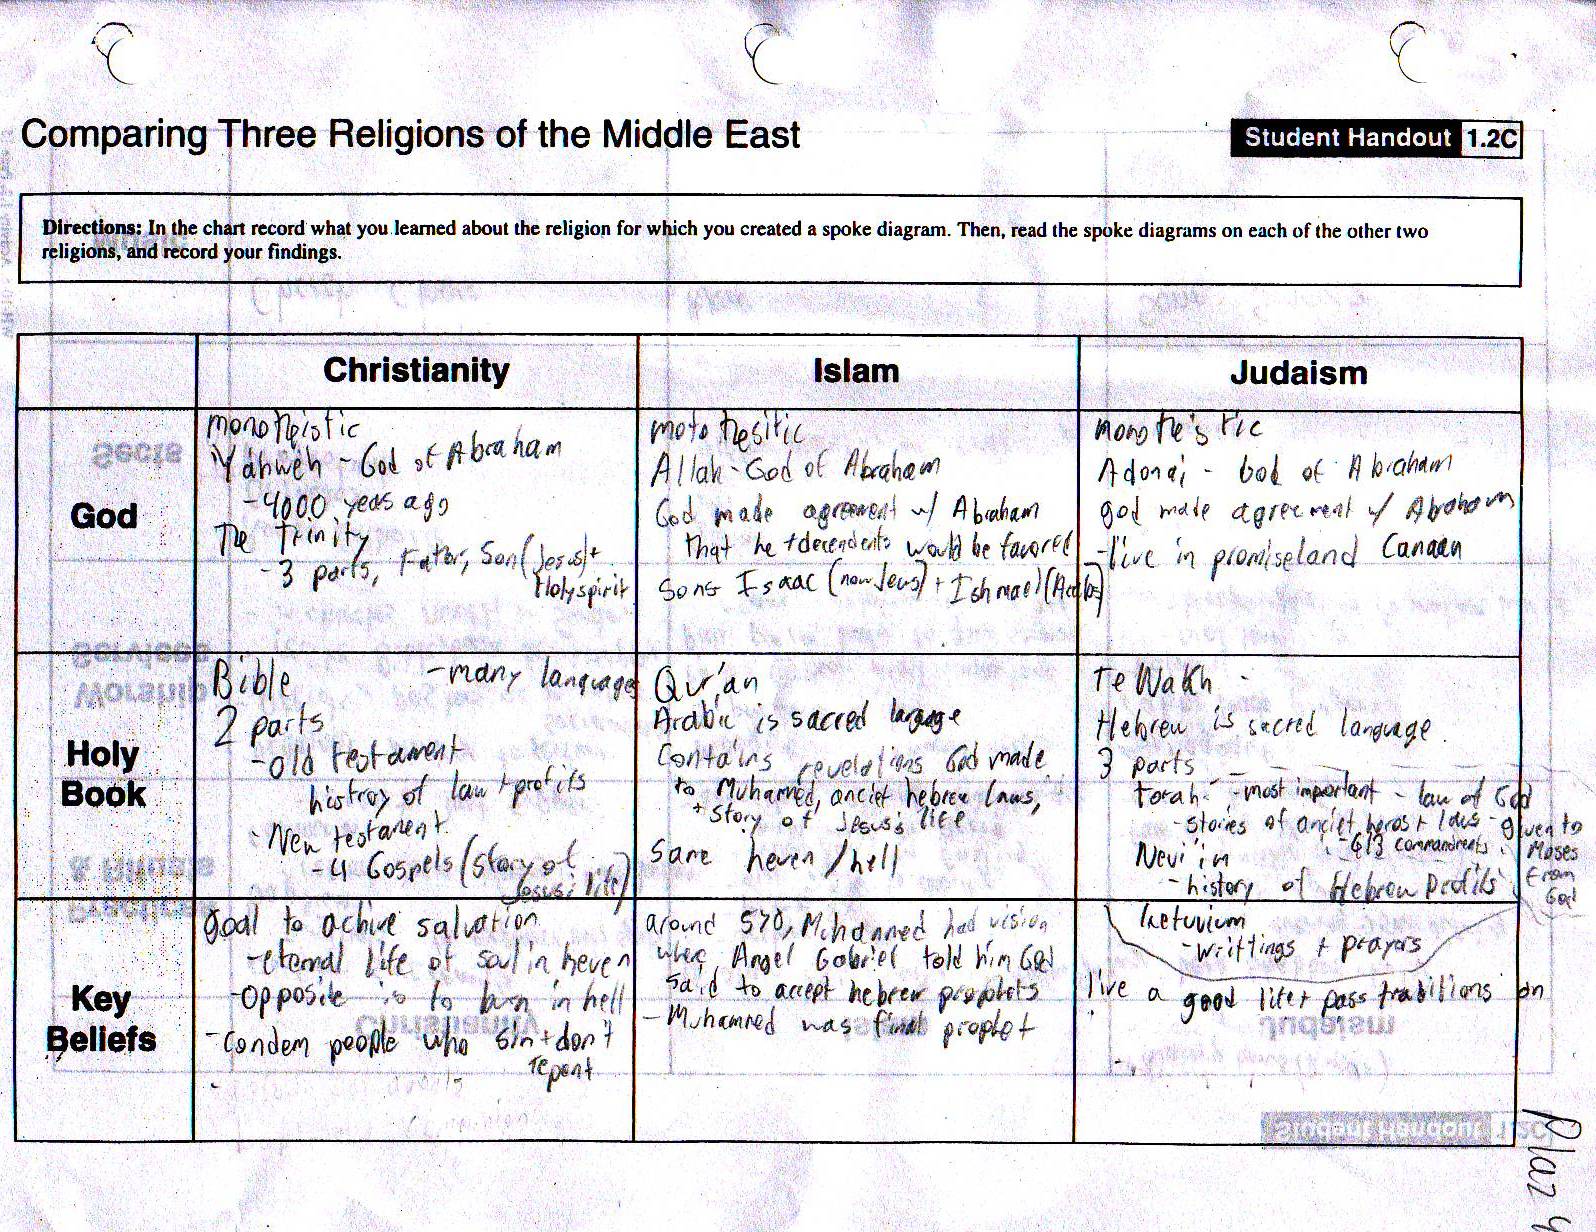 Comparing Three Religions of the Middle East
Student Handout 1.2C
Directions: In the chart record what you learned about the religion for which you created a spoke diagram. Then, read the spoke diagrams on each of the other two
religions, and record your findings.
Christianity
Islam
Judaism
God
monotheistic
Yahweh - God of Abraham
- 4000 years ago
The Trinity
- 3 parts, Father, Son (Jesus) +
Holy spirit
moto thesitic
Allah - God of Abraham
God made agreement w/ Abraham
that he + decendents would be favored
Sons Isaac (now Jews) + Ishmael (Arabs)
monotheistic
Adonai - God of Abraham
god made agreement w/ Abraham
- live in promiseland Canaan
Holy
Book
Bible - many languages
2 parts
- old testament
histroy of law + profits
- New testament
- 4 Gospels (story of
Jesus's life)
Qur'an
Arabic is sacred language
Contains revelations God made
to Muhamed, anciet hebrew laws,
+ story of Jesus's life
Same heven / hell
TeNakh -
Hebrew is sacred language
3 parts
torah - most important - law of God
- stories of anciet heros + laws - given to
Moses
From
God
- 613 commandments
Nevi'im
- history of Hebrew Profits
Ketuvium
- writtings + prayers
Key
Beliefs
goal to achive salvation
- eternal life of soul in heven
- opposite is to burn in hell
- Condem people who sin + don't
repent
around 570, Muhammed had vision
where Angel Gabriel told him God
said to accept hebrew prophets
- Muhammed was final prophet
live a good life + pass traditions on